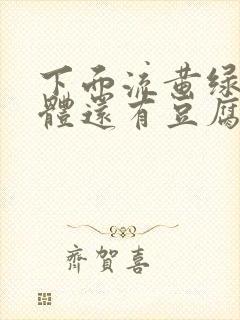 下面流黄绿
體還有豆腐
齊賀喜